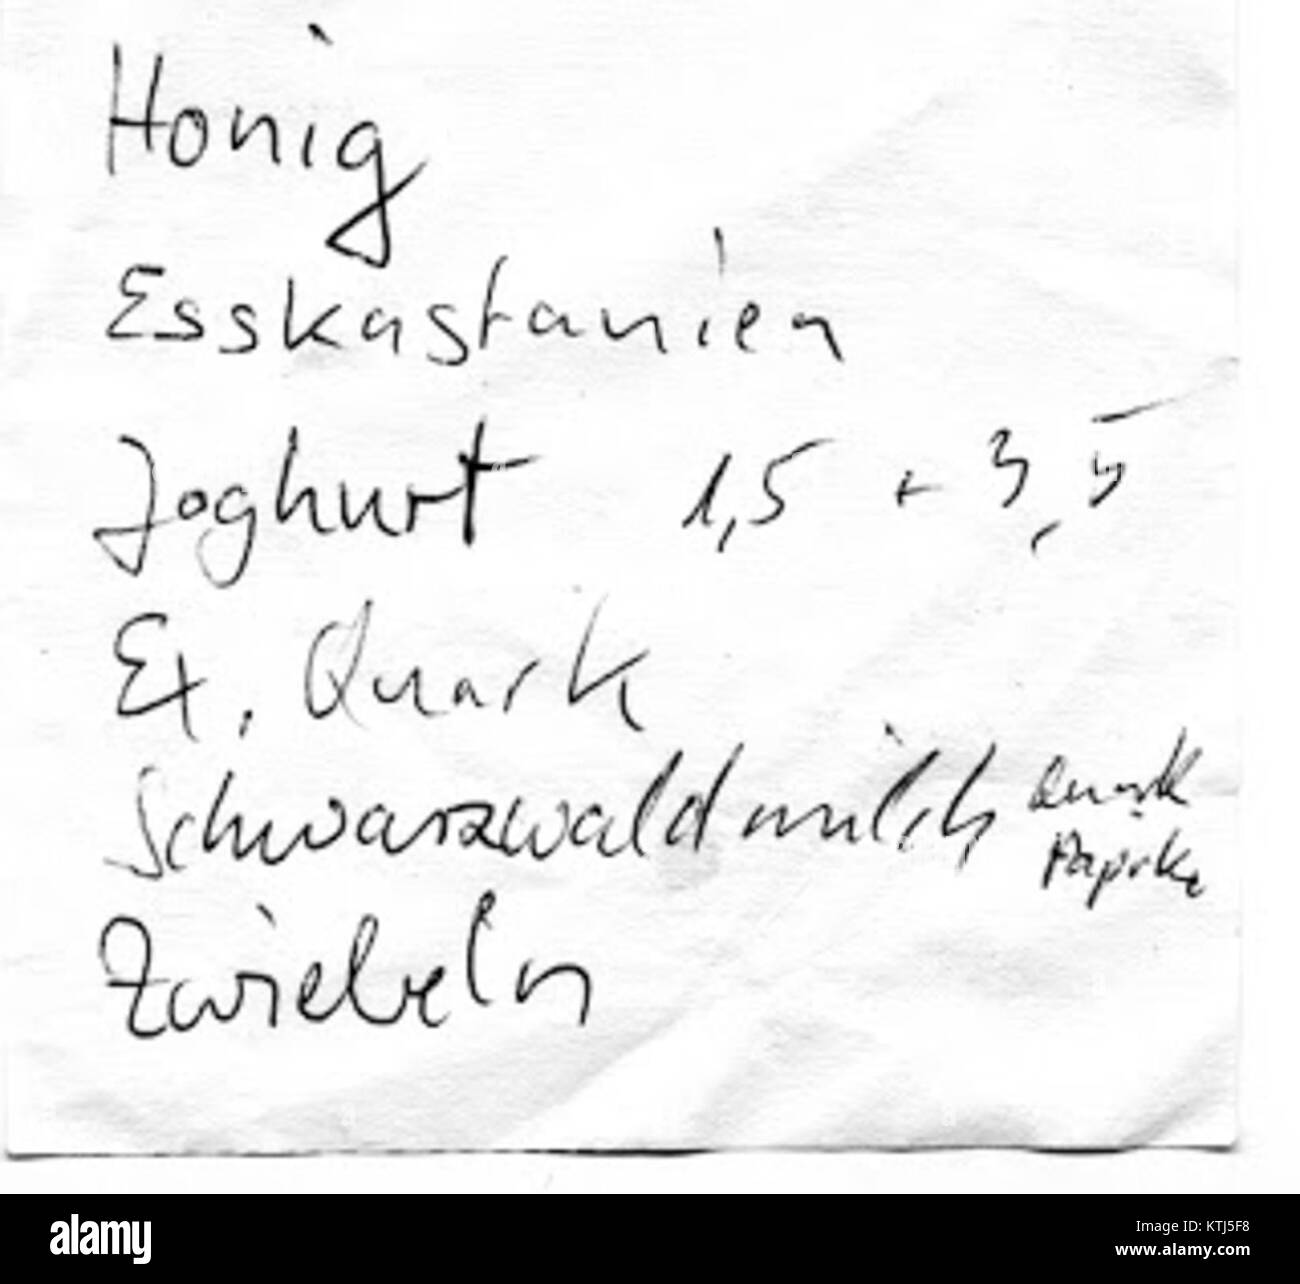 Honig
Esskastanien
Joghurt 1,5 + 3,5
Ex. Quark
Schwarzwaldmilch Quark
Paprika
Zwiebeln
alamy
Image ID: KTJ5F8
www.alamy.com